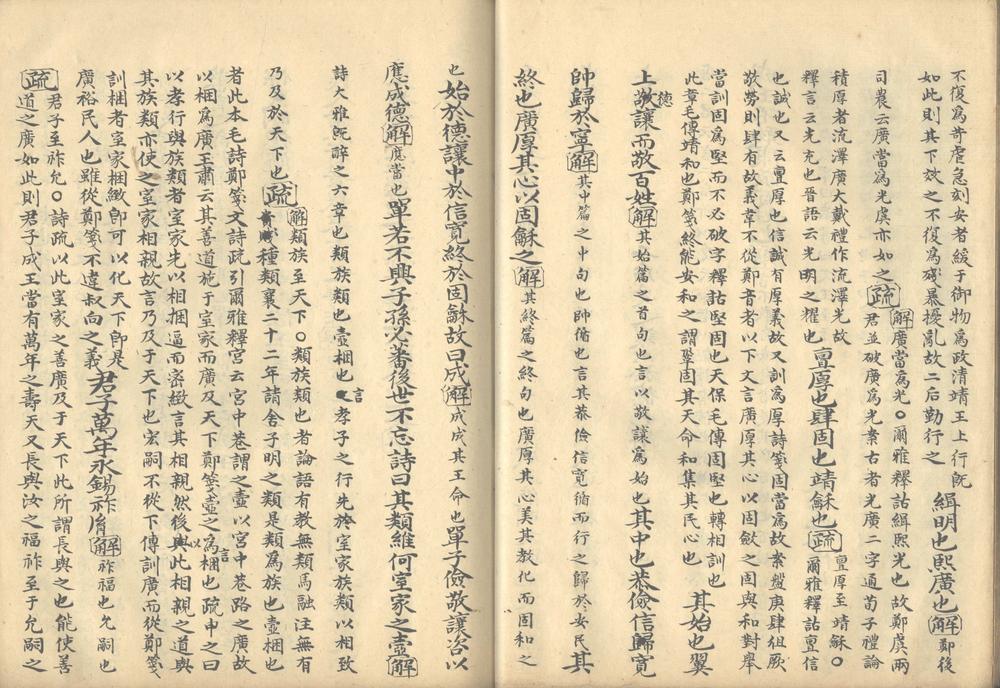 不復爲苛虐急刻安者緩于御物爲政清靖王上行旣
如此則其下效之不復爲殘暴擾亂故二后勤行之 緝明也熙廣也解鄭後
司農云廣當爲光虞亦如之疏解廣當爲光○爾雅釋詁緝熙光也故鄭虞兩君並破廣爲光案古者光廣二字通荀子禮論
積厚者流澤廣大戴禮作流澤光故
釋言云光充也晉語云光明之燿也 亶厚也肆固也靖龢也疏亶厚至靖龢○爾雅釋詁亶信
也誠也又云亶厚也信誠有厚義故又訓爲厚詩箋固當爲故案盤庚肆徂厥
敬勞則肆有故義韋不從鄭音者以下文言廣厚其心以固龢之固與和對舉
當訓固爲堅而不必破字釋詁堅固也天保毛傳固堅也轉相訓也
此章毛傳靖和也鄭箋終能安和之謂鞏固其天命和集其民心也 其始也翼
上德讓而敬百姓解其始篇之首句也言以敬讓爲始也其中也恭儉信寬
帥歸於寧解其中篇之中句也帥循也言其恭儉信寬循而行之歸於安民其
終也廣厚其心以固龢之解其終篇之終句也廣厚其心美其教化而固和之
也始於德讓中於信寬終於固龢故曰成解成成其王命也單子儉敬讓咨以
應成德解應當也單若不興子孫必蕃後世不忘詩曰其類維何室家之壼解
詩大雅旣醉之六章也類族類也壼梱也言孝子之行先於室家族類以相致
乃及於天下也疏解類族至天下○類族類也者論語有教無類馬融注無有種類襄二十二年請舍子明之類是類爲族也壼梱也
者此本毛詩鄭箋文詩疏引爾雅釋宮云宮中巷謂之壼以宮中巷路之廣故
以梱爲廣王肅云其善道施于室家而廣及天下鄭箋壼之言梱也疏申之曰
以孝行與族類者室家先以相梱逼而密緻言其相親然後以此相親之道與
其族類亦使之室家相親故言乃及于天下也宏嗣不從下傳訓廣而從鄭箋
訓梱者室家梱緻卽可以化天下卽是
廣裕民人也雖從鄭箋不違叔向之義 君子萬年永錫祚胤解祚福也允嗣也
疏君子至祚允○詩疏以此室家之善廣及于天下此所謂長與之也能使善道之廣如此則君子成王當有萬年之壽天又長與汝之福祚至于允嗣之